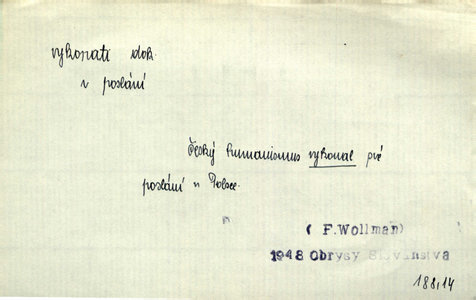 vykonati dok.
v poslání
český humanismus vykonal své
poslání v Polsce.
( F.Wollman)
1948 Obrysy Slovanstva
188,14